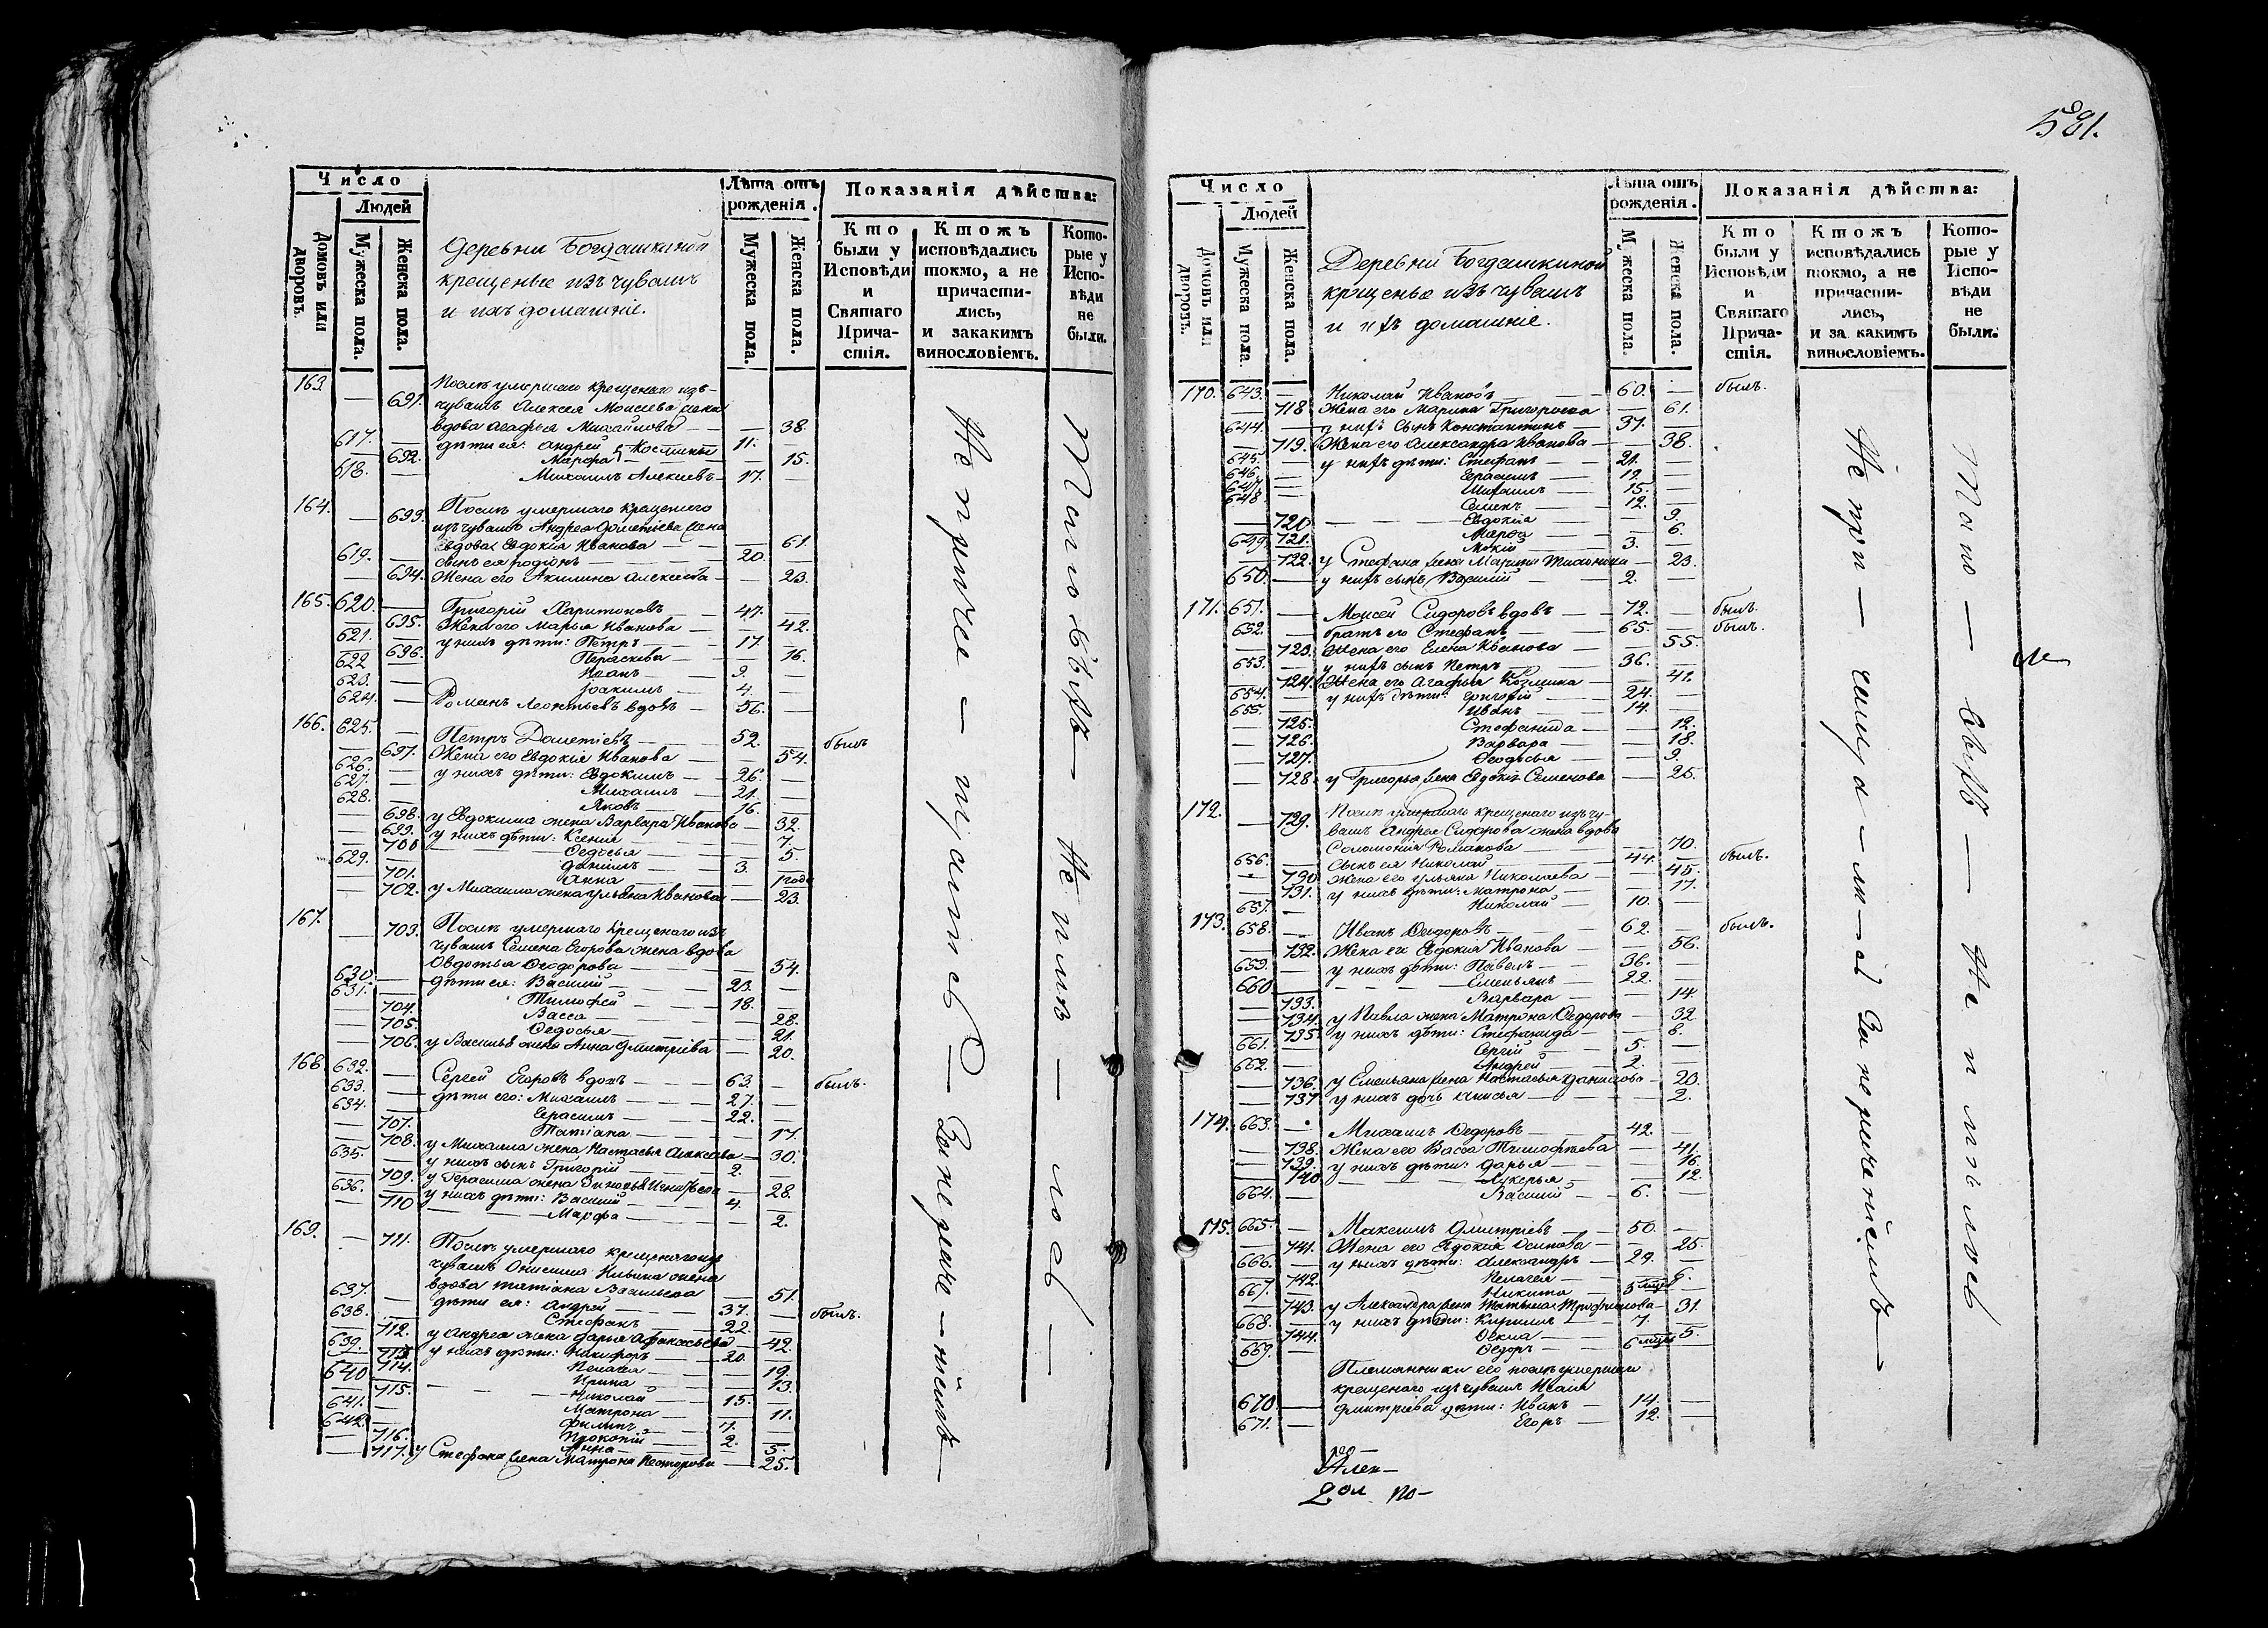 581.
Число
Людей
Домовъ или дворовъ.
Мужеска пола.
Женска пола.
Деревни Богдашкиной
крещеные изъ чувашъ
и ихъ домашніе.
Лѣта отъ рожденія.
Мужеска пола.
Женска пола.
Показанія дѣйства:
Кто были у Исповѣди и Святаго Причастія.
Ктожъ исповѣдались токмо, а не причастились, и закакимъ винословіемъ.
Которые у Исповѣди не были.
163. — 691. Послѣ умершаго крещенаго изъ
чувашъ Алексея Моисеева жена
вдова Агафья Михайлова — — 38.
617. — дѣти ея: Андрей 11. —
692. Марфа Космины — 15.
618. — Михаилъ Алексѣевъ — 17. —
164. — 693. Послѣ умершаго крещенаго
изъ чувашъ Андрея Дометіева жена
вдова Евдокія Иванова — — 61.
619. — сынъ ея Родіонъ — 20. —
— 694. Жена его Акилина Алексеева — — 23.
165. 620. — Григорій Харитоновъ — 47. —
— 695. Жена его Марья Иванова — — 42.
621. — у нихъ дѣти: Петръ — 17. —
— 696. Параскева — — 16.
622 — Иванъ — 9. —
623. — Іоакимъ — 4. —
624. — Романъ Леонтьевъ вдовъ — 56. —
166. 625. — Петръ Дометіевъ — 52. — былъ
— 697. Жена его Евдокія Иванова — — 54.
626. — у нихъ дѣти: Евдокимъ — 26. —
627. — Михаилъ — 21. —
628. — Яковъ — 16. —
— 698. у Евдокима жена Варвара Иванова — 32.
— 699. у нихъ дѣти: Ксенія — — 7.
— 700 Ѳедосья — — 5.
629. — Даніилъ — 3. —
— 701. Анна — — 1 годъ
— 702. у Михаила жена Ульяна Иванова — 23.
167. — 703. Послѣ умершаго крещенаго изъ
чувашъ Семена Егорова жена вдова
Овдотья Ѳеодорова — — 54.
630. — дѣти ея: Василій — 23. —
631. — Тимофей — 18. —
— 704. Васса — — 28.
— 705. Ѳедосья — — 21.
— 706. у Василья жена Анна Дмитріева — 20.
168. 632. — Сергей Егоровъ вдовъ — 63. — былъ.
633. — дѣти его: Михаилъ — 27. —
634. — Герасимъ — 22. —
— 707. Татіана — — 17.
— 708. у Михаила жена Настасья Алексеева — 30.
635. — у нихъ сынъ Григорій — 2. —
— 709. у Герасима жена Зиновья — 28.
636. — у нихъ дѣти: Василій — 4. —
— 710 Марфа — — 2.
169. — 711. Послѣ умершаго крещенаго изъ
чувашъ Онисима Ильина жена
вдова Татіана Васильева — 51.
637. — дѣти ея: Андрей — 37. — былъ.
638. — Стефанъ — 22. —
— 712. у Андрея жена Дарья Афанасьева — 42.
639. — у нихъ дѣти: Никифоръ — 20. —
713. Пелагея — — 19.
714. Ирина — — 13.
640 — Николай — 15. —
— 715. Матрона — — 11.
641. — Филипъ — 7. —
642. — Прокопій — 2. —
— 716. Анна — — 5.
— 717. у Стефана жена Матрона Несторова — 25.
Не причастились за нераченіемъ
Таковыхъ не имелось
Число
Людей
Домовъ или дворовъ.
Мужеска пола.
Женска пола.
Деревни Богдашкиной
крещеные изъ чувашъ
и ихъ домашніе.
Лѣта отъ рожденія.
Мужеска пола.
Женска пола.
Показанія дѣйства:
Кто были у Исповѣди и Святаго Причастія.
Ктожъ исповѣдались токмо, а не причастились, и за какимъ винословіемъ.
Которые у Исповѣди не были.
170. 643. — Николай Ивановъ — 60. — былъ.
— 718 Жена его Марина Григорьева — 61.
644. — у нихъ сынъ Константинъ — 37. —
— 719. Жена его Александра Иванова — — 38.
645. — у нихъ дѣти: Стефанъ — 21. —
646. — Герасимъ — 19. —
647. — Михаилъ — 15. —
648 — Семенъ — 12. —
— 720 Евдокія — — 9.
— 721. Марфа — — 6.
649. — Мокій — 3. —
— 722. у Стефана жена Марина — 23.
650. — у нихъ сынъ Василій — 2. —
171. 651. — Моисей Сидоровъ вдовъ — 72. — былъ.
652. — братъ его Стефанъ — 65. — былъ.
— 723. Жена его Елена Иванова — — 55.
653. — у нихъ сынъ Петръ — 36. —
— 724. Жена его Агафья Козмина — — 41.
654. — у нихъ дѣти: Григорій — 24. —
655. — Иванъ — 14. —
— 725. Стефанида — — 12.
— 726. Варвара — — 18.
— 727. Ѳеодосья — — 9.
— 728 у Григорья жена Евдокія Семенова — 25.
172. — 729. Послѣ умершаго крещенаго изъ чу-
вашъ Андрея Сидорова жена вдова
Соломонія Романова — — 70.
656. — Сынъ ея Николай — 44. — былъ.
— 730 Жена его Ульяна Николаева — — 45.
— 731. у нихъ дѣти: Матрона — — 17.
657. — Николай — 10. —
173. 658. — Иванъ Ѳеодоровъ — 62. — былъ.
— 732. Жена его Евдокія Иванова — — 56.
659. — у нихъ дѣти: Павелъ — 36. —
660. — Емельянъ — 22. —
— 733. Варвара — — 14.
— 734. у Павла жена Матрона Ѳедорова — 32
— 735. у нихъ дѣти: Стефанида — — 8.
661. — Сергій — 5. —
662. — Андрей — 2. —
— 736. у Емельяна жена Настасья Данилова — 20.
— 737 у нихъ дочь Анисья — — 2.
174. 663. — Михаилъ Ѳедоровъ — 42. —
— 738. Жена его Васса Тимофѣева — 41.
— 739. у нихъ дѣти: Дарья — — 16.
— 740 Лукерья — — 12.
664. — Василій — 6. —
175. 665. — Максимъ Дмитріевъ — 50. —
— 741. Жена его Евдокія Осипова — 25.
666. — у нихъ дѣти: Александръ — 29. —
— 742. Пелагея — — 6.
667. — Никита — 5 мцы —
— 743. у Александра жена Татьяна Трофимова — 31.
668. — у нихъ дѣти: Кирилъ — 7. —
— 744. Ѳекла — — 5.
669. — Ѳедоръ — 6 мцы —
Племянники его послѣ умершаго
крещенаго изъ чувашъ Исаія
670. — Дмитріева дѣти: Иванъ — 14. —
671. — Егоръ — 12. —
Не причастились за нераченіемъ
Таковыхъ не имелось